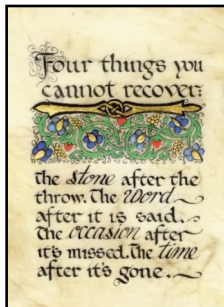 Four things you
cannot recover:
the Stone after the
throw. The Word
after it is said.
The occasion after
it's missed. The time
after it's gone.